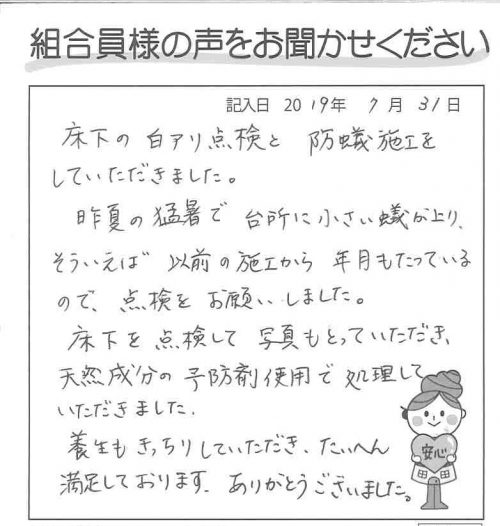 組合員様の声をお聞かせください
記入日 2019年 7月 31日
床下の 白アリ点検と 防蟻施工を
していただきました。
昨夏の猛暑で 台所に小さい蟻が上り、
そういえば 以前の施工から 年月もたっている
ので、点検を お願いしました。
床下を 点検して 写真もとっていただき、
天然成分の 予防剤使用で 処理して
いただきました。
養生も きっちりしていただき、たいへん
満足しております。ありがとうございました。
安心